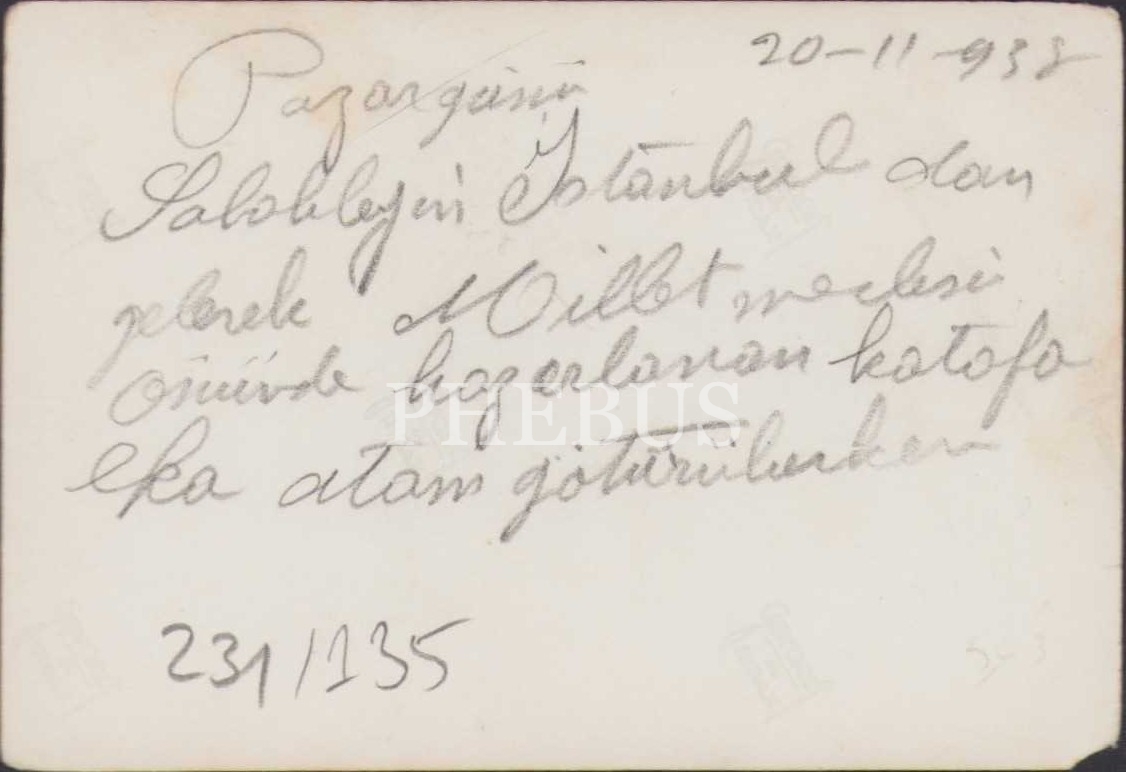 20-11-938
Pazar günü
Sabahleyin İstanbul dan
gelerek Millet meclisi
önünde hazerlanan katafa
lka atam götürülürken
PHEBUS
231/135